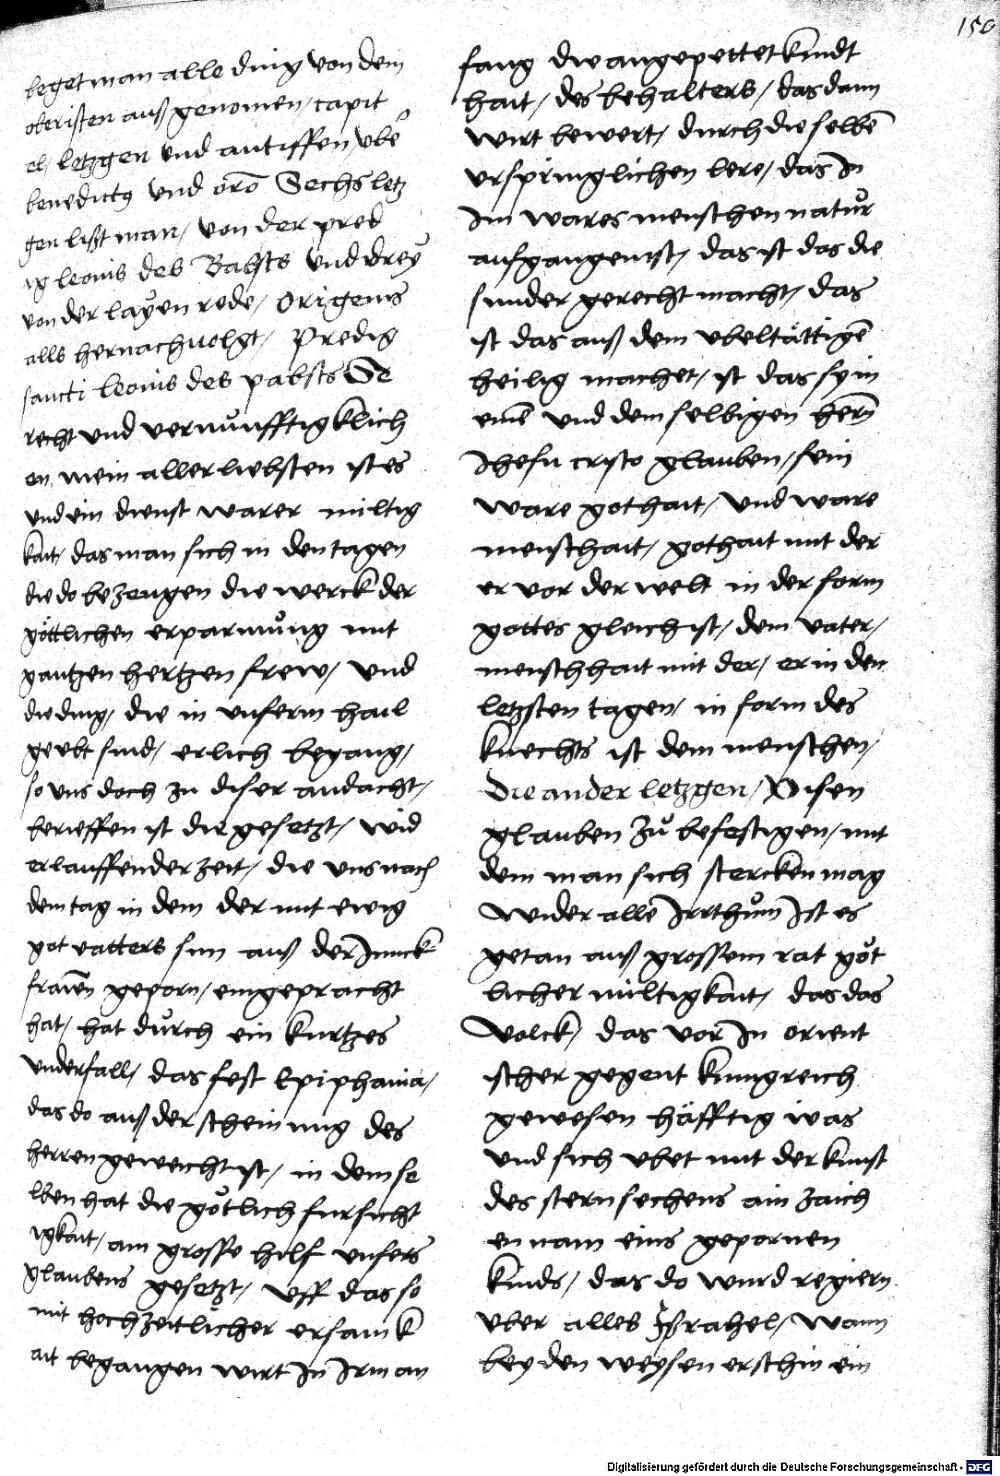 150
leget man alle ding von dem
obersten auß genomen / capit
el / letzgen vnd antiffen / vbeˢ
benedictꝰ vnd orō Sechs letz
gen lißt man / von der pred
ig leonis des Babsts vnd drey
von der layen rede / Origenis
alls hernachuolgt / Predig
sancti leonis des pabsts Ge
recht vnd vernůnfftigklich
en mein allerliebsten ist es
vnd ein dienst warer miltig
kait / das man sich in den tagen
die do bezeugen die werck der
göttlichen erparmůng mit
gantzen hertzen frew / vnd
die ding / die in vnserm hail
geubt sind / erlich begang /
so vns doch zu diser andacht /
berieffen ist die gesetzt / wid
erlauffender zeit / die vns nach
dem tag in dem der mit ewig
got vatters sun auß der Junck
frawēn geporn / eingepracht
hat / hat důrch ein kurtzes
vnderfall / das fest Epiphania /
das do auß der scheinung des
herren geweicht ist / in dem se
lben hat die gőtlich fursicht
igkait / ain grosse hilf vnsers
glaubens gesetzt / vff das so
mit hochzeitlicher ersamk
ait begangen wirt In Irm an
fang die angepettet kindt
hait / des behalters / das dann
wirt bewert / durch die selbē
vrspringlichen lere / das In
Im wares menschen natůr
aufgangen ist / das ist das die
sunder gerecht macht / das
ist das auß dem vbeltättigē
heilig machet / ist das sy in
einē vnd dem selbigen herñ
Jhesu cristo glauben / sein
ware gothait / vnd ware
menschait / gothait mit der
er vor der welt in der form
gottes gleich ist / dem vater /
menschhait mit der / er in den
letzsten tagen / in form des
knechts ist dem menschen /
Die ander letzgen / Disen
glauben zů befestigen / mit
dem man sich stercken mag
wider alle Irrthům Ist es
getan auß grossem rat gőt
licher miltigkait / das das
volck / das vor In orient
scher gegent kunigreich
gewesen häfftig was
vnd sich vbet mit der kunst
des stern sechens ain zaich
en nam eins gepornen
kinds / das do wurd regiern
vber alles Israhel / wann
bey den weysen erschin ein
Digitalisierung gefördert durch die Deutsche Forschungsgemeinschaft - DFG